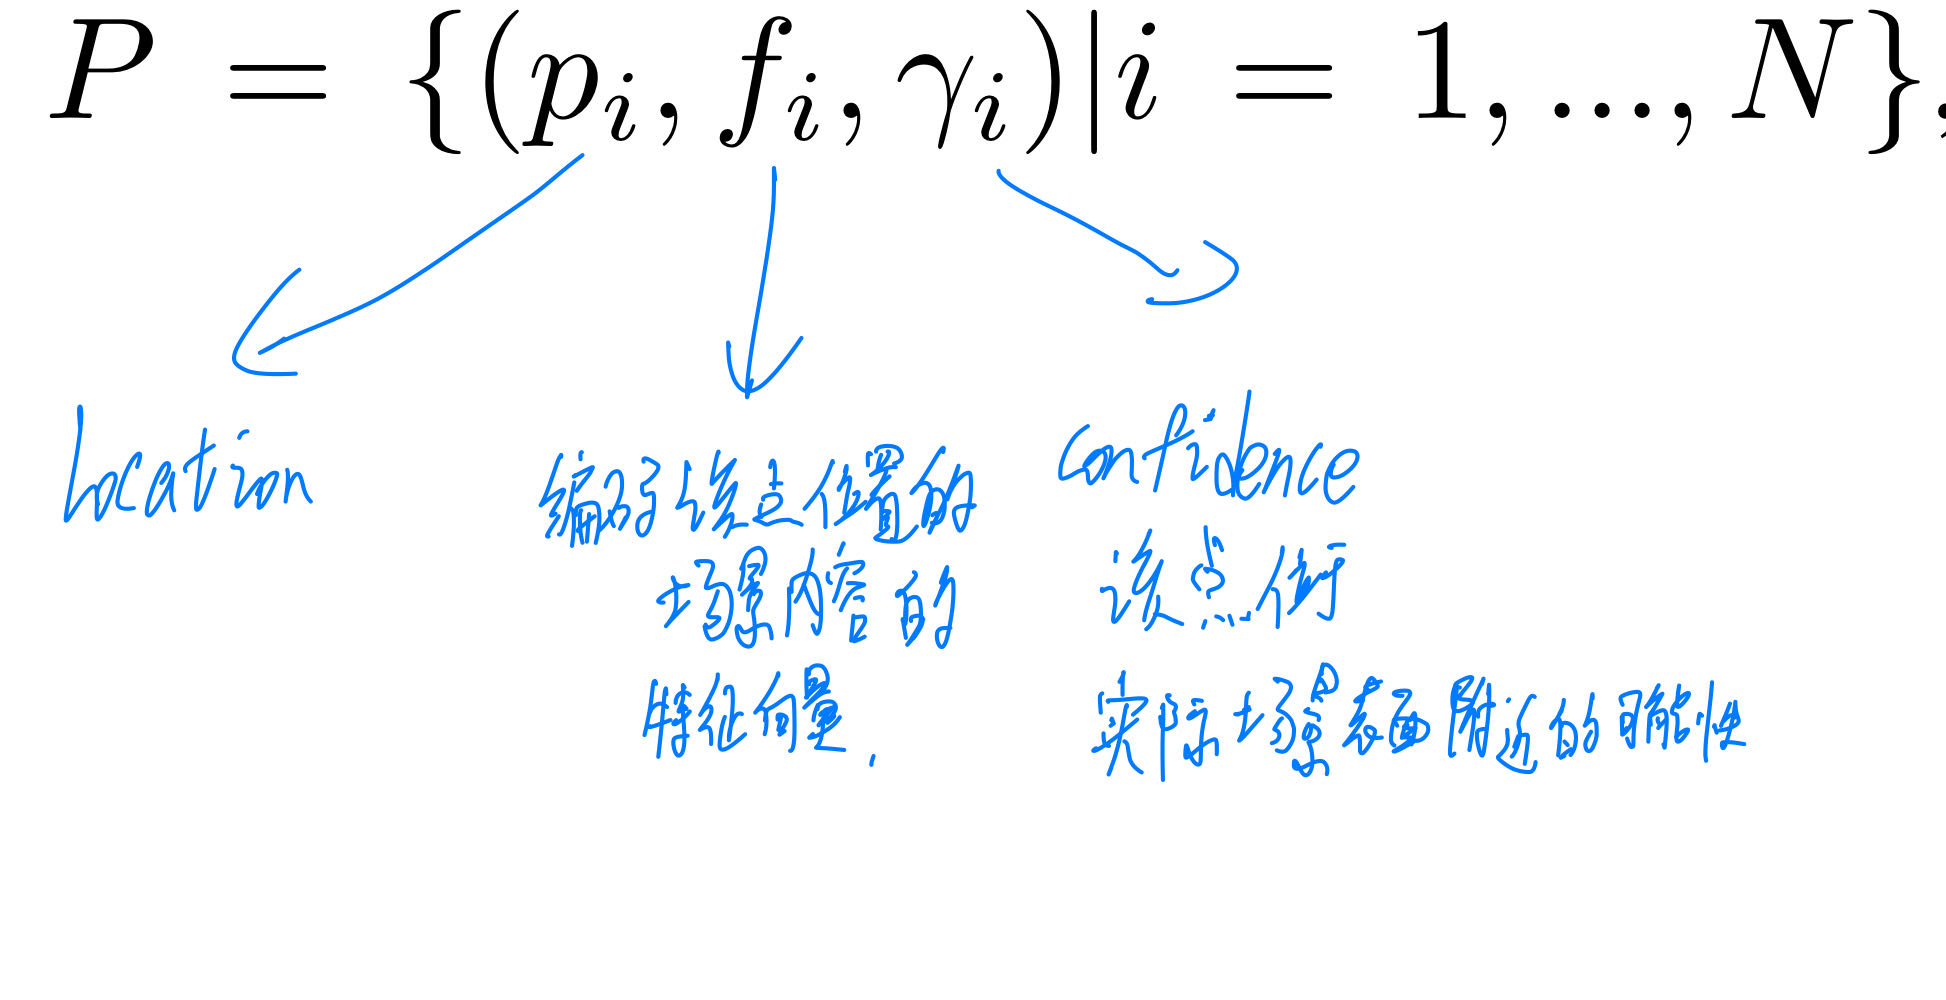 P = {(pᵢ, fᵢ, γᵢ)|i = 1, ..., N},
location
编码了该点位置的
场景内容的
特征向量.
confidence
该点位于
实际场景表面附近的可能性